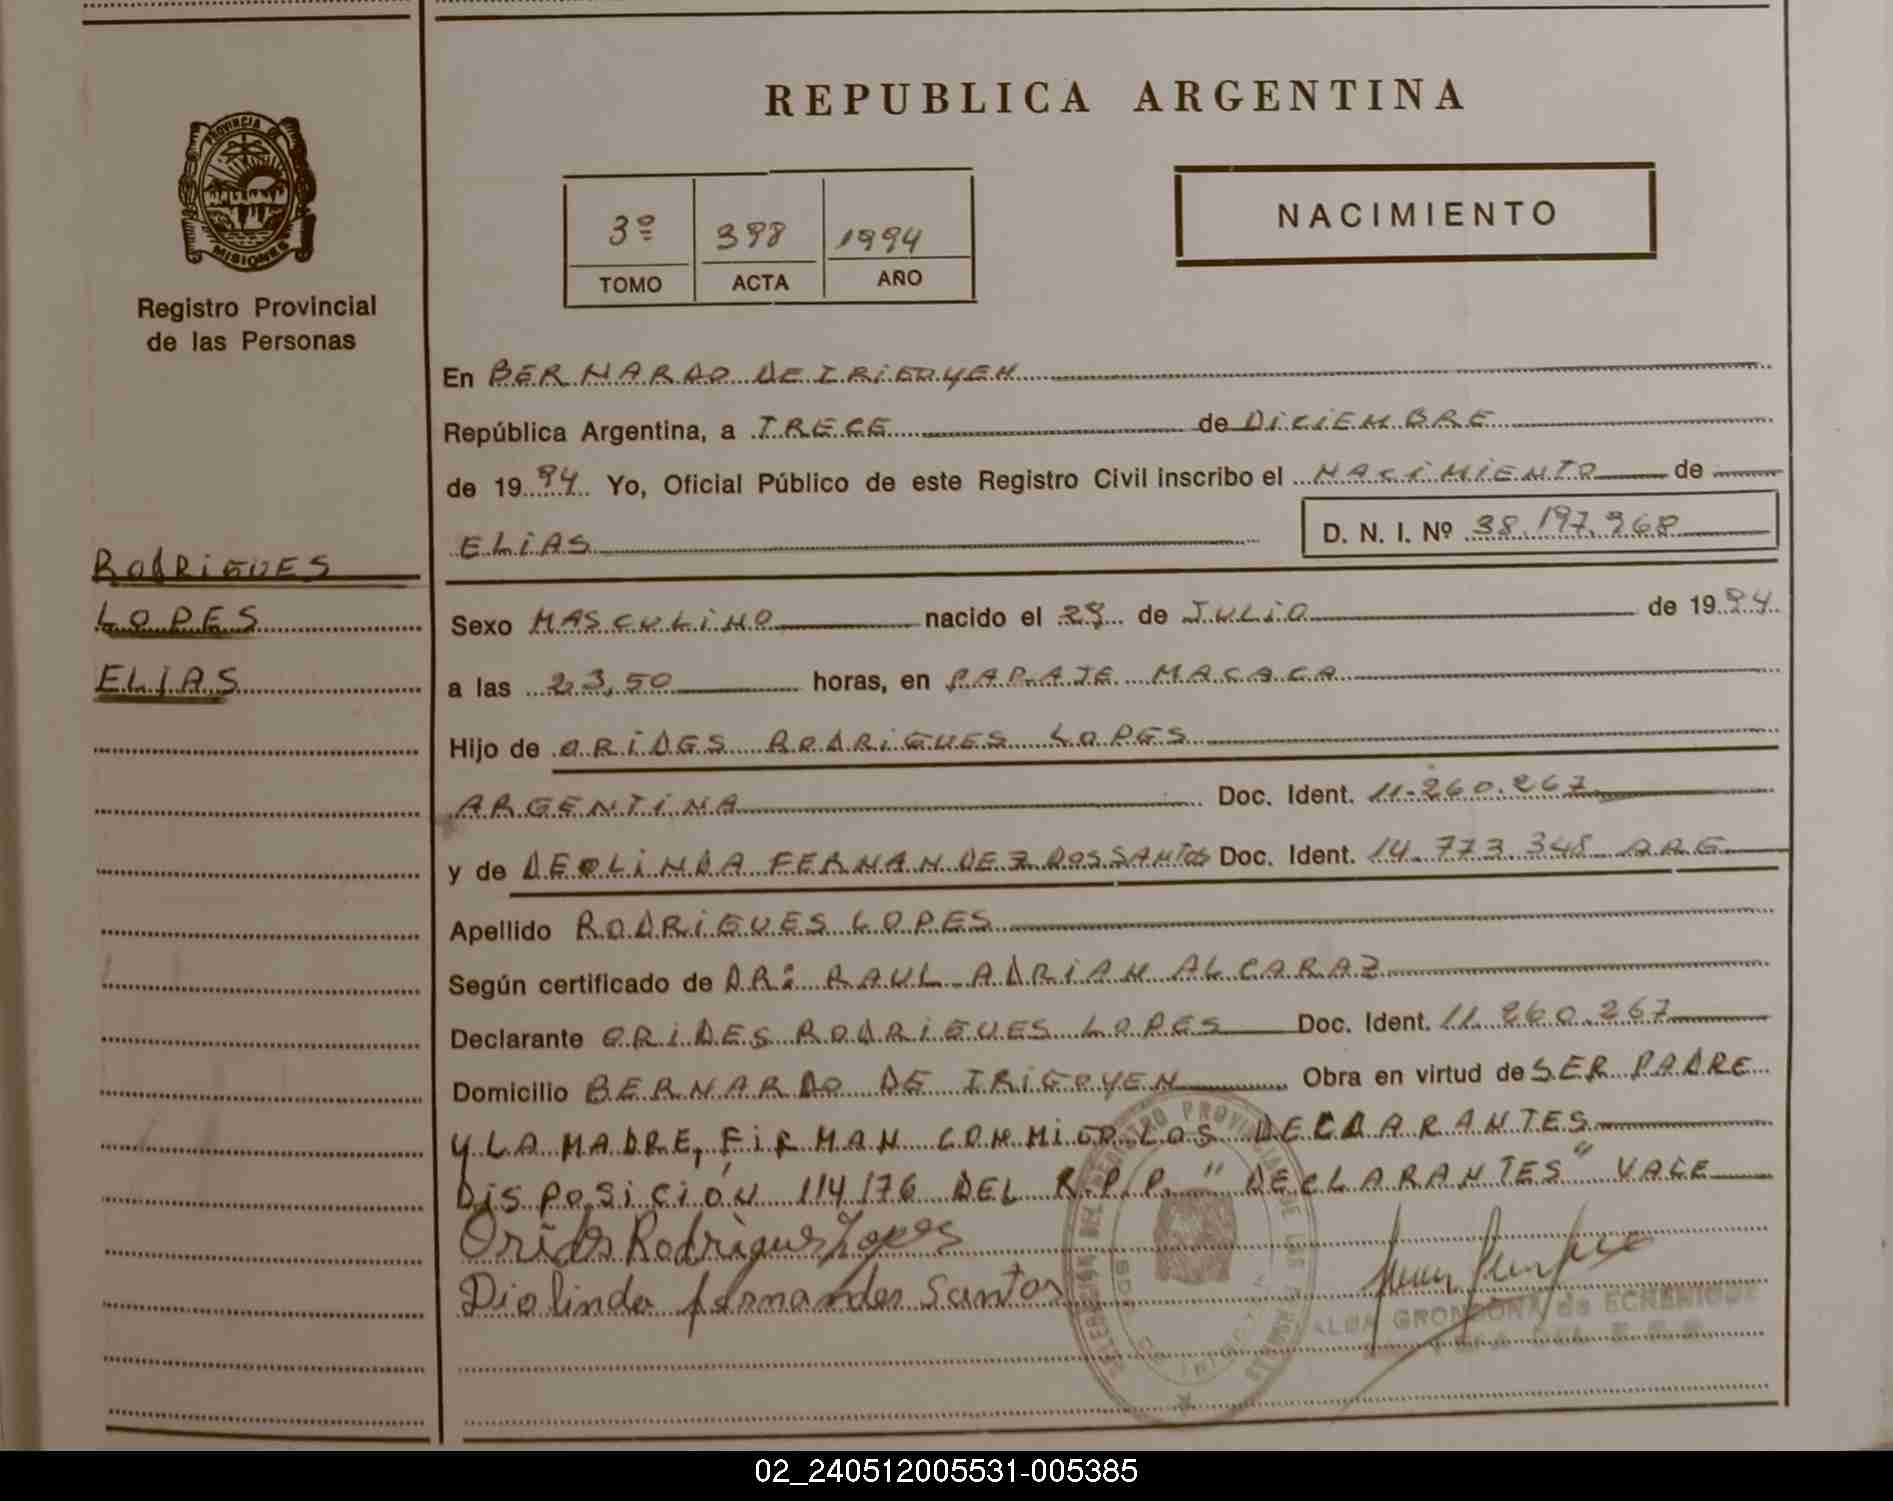 REPUBLICA ARGENTINA
PROVINCIA DE
MISIONES
Registro Provincial
de las Personas
3º 398 1994
TOMO ACTA AÑO
NACIMIENTO
En BERNARDO DE IRIGOYEN
República Argentina, a TRECE de DICIEMBRE
de 1994 Yo, Oficial Público de este Registro Civil inscribo el NACIMIENTO de
ELIAS D. N. I. Nº 38.197.968
RODRIGUES
LOPES
ELIAS
Sexo MASCULINO nacido el de JULIO de 1994
a las 23,50 horas, en PARAJE MACACA
Hijo de ORIDES RODRIGUES LOPES
ARGENTINA Doc. Ident. 11.260.267
y de DEOLINDA FERNANDEZ DOS SANTOS Doc. Ident. 14.773.348 ARG
Apellido RODRIGUES LOPES
Según certificado de DR: RAUL ADRIAN ALCARAZ
Declarante ORIDES RODRIGUES LOPES Doc. Ident. 11.260.267
Domicilio BERNARDO DE IRIGOYEN Obra en virtud de SER PADRE
Y LA MADRE, FIRMAN CONMIGO LOS DECLARANTES
DISPOSICIÓN 114/76 DEL R.P.P. "DECLARANTES" VALE
Orides Rodrigues Lopes
Diolinda fernandes Santos
GRONDONA de ECHENIQUE
02_240512005531-005385